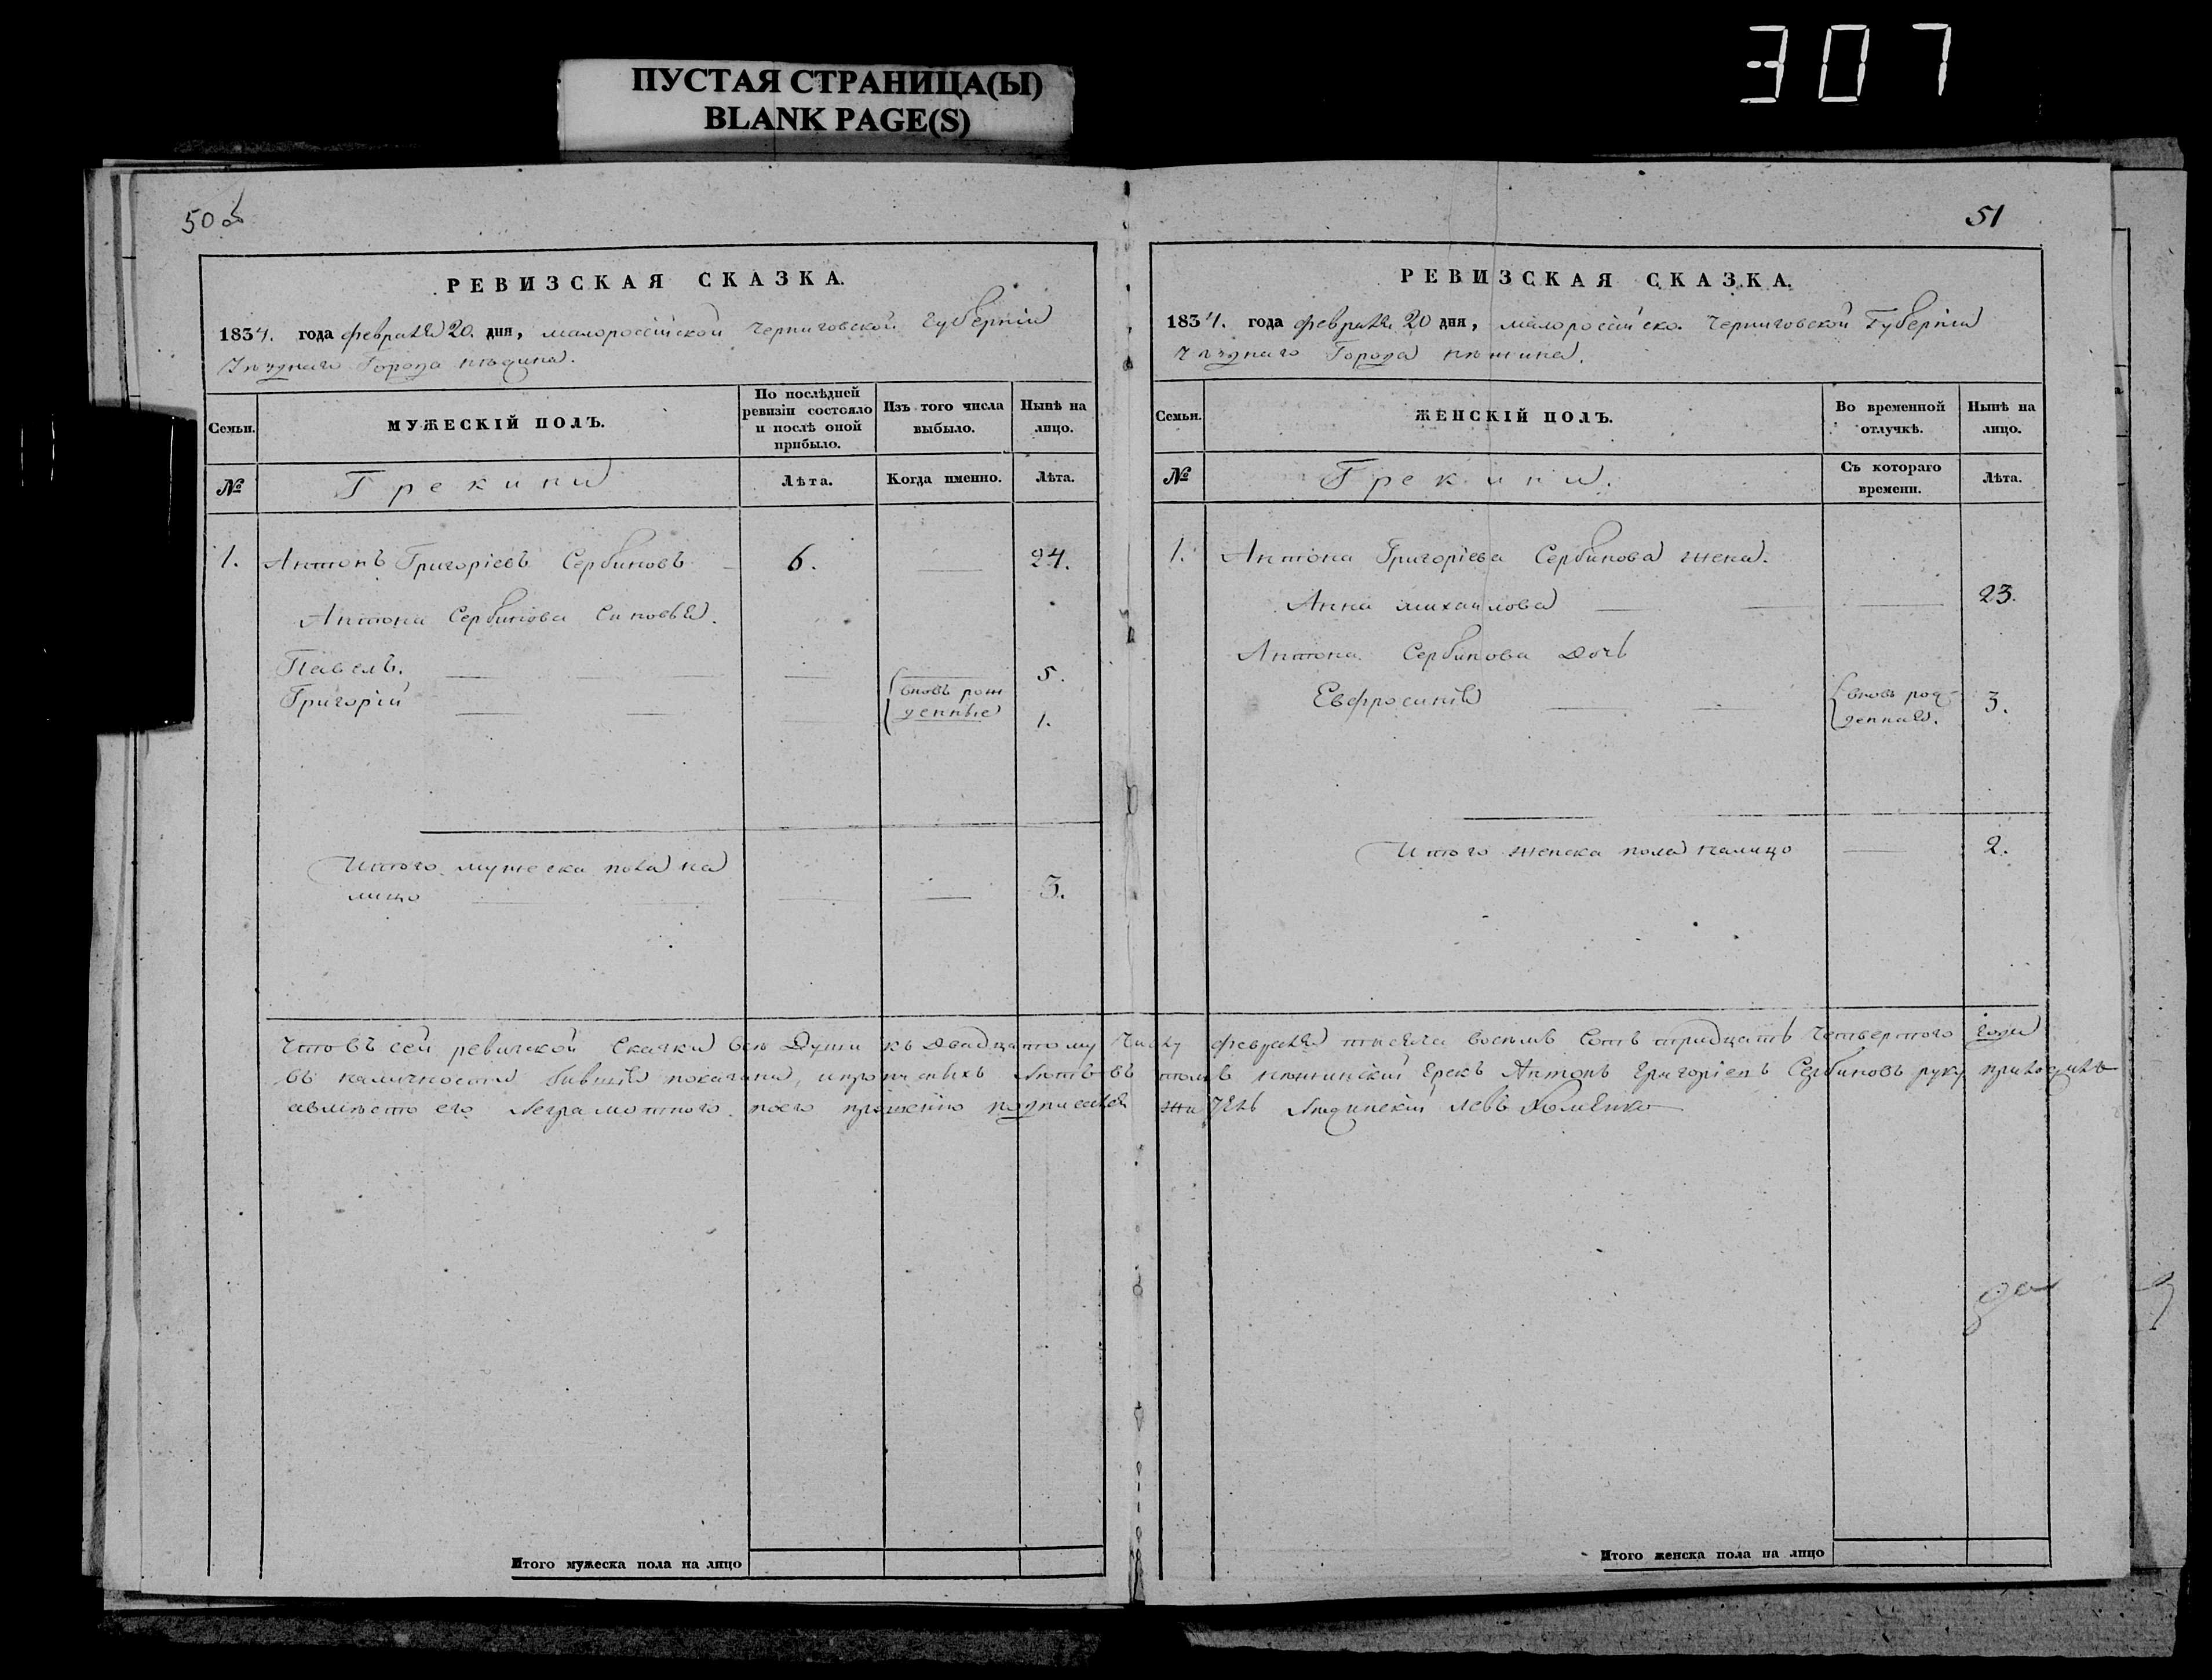 307
ПУСТАЯ СТРАНИЦА(Ы)
BLANK PAGE(S)
50
РЕВИЗСКАЯ СКАЗКА.
1834. года февраля 20. дня, малороссійской Черниговской Губерніи
Уѣзднаго Города нѣжина.
Семьи.
МУЖЕСКІЙ ПОЛЪ.
По послѣдней ревизіи состояло и послѣ оной прибыло.
Изъ того числа выбыло.
Нынѣ на лицо.
№
Грекини
Лѣта.
Когда именно.
Лѣта.
1. Антонъ Григоріевъ Сербиновъ 6. 24.
Антона Сербинова Синовья.
Павелъ. 5.
Григорій 1.
вновь рож
денные
Итого мужеска пола на
лицо 3.
51
РЕВИЗСКАЯ СКАЗКА.
1834. года февраля 20 дня, малороссійско. Черниговской Губерніи
Уѣзднаго Города нѣжина.
Семьи.
ЖЕНСКІЙ ПОЛЪ.
Во временной отлучкѣ.
Нынѣ на лицо.
№
Грекини.
Съ котораго времени.
Лѣта.
1. Антона Григоріева Сербинова жена.
Анна михаилова 23.
Антона Сербинова Дочь
Евфросинія 3.
вновь рож
денная.
Итого женска пола налицо 2.
Что въ сей ревизской Сказки всѣ Души къ двадцатому Числу февраля тисяча восемь Сотъ тридцать Четвертого года
въ наличности бившія показани, и прописныхъ нѣтъ въ томъ нѣжинскій Грекъ Антонъ Григоріевъ Сербиновъ руку приложилъ
авмѣсто его Неграмотного поего прошенію подписался Левъ
Итого мужеска пола на лицо
Итого женска пола на лицо